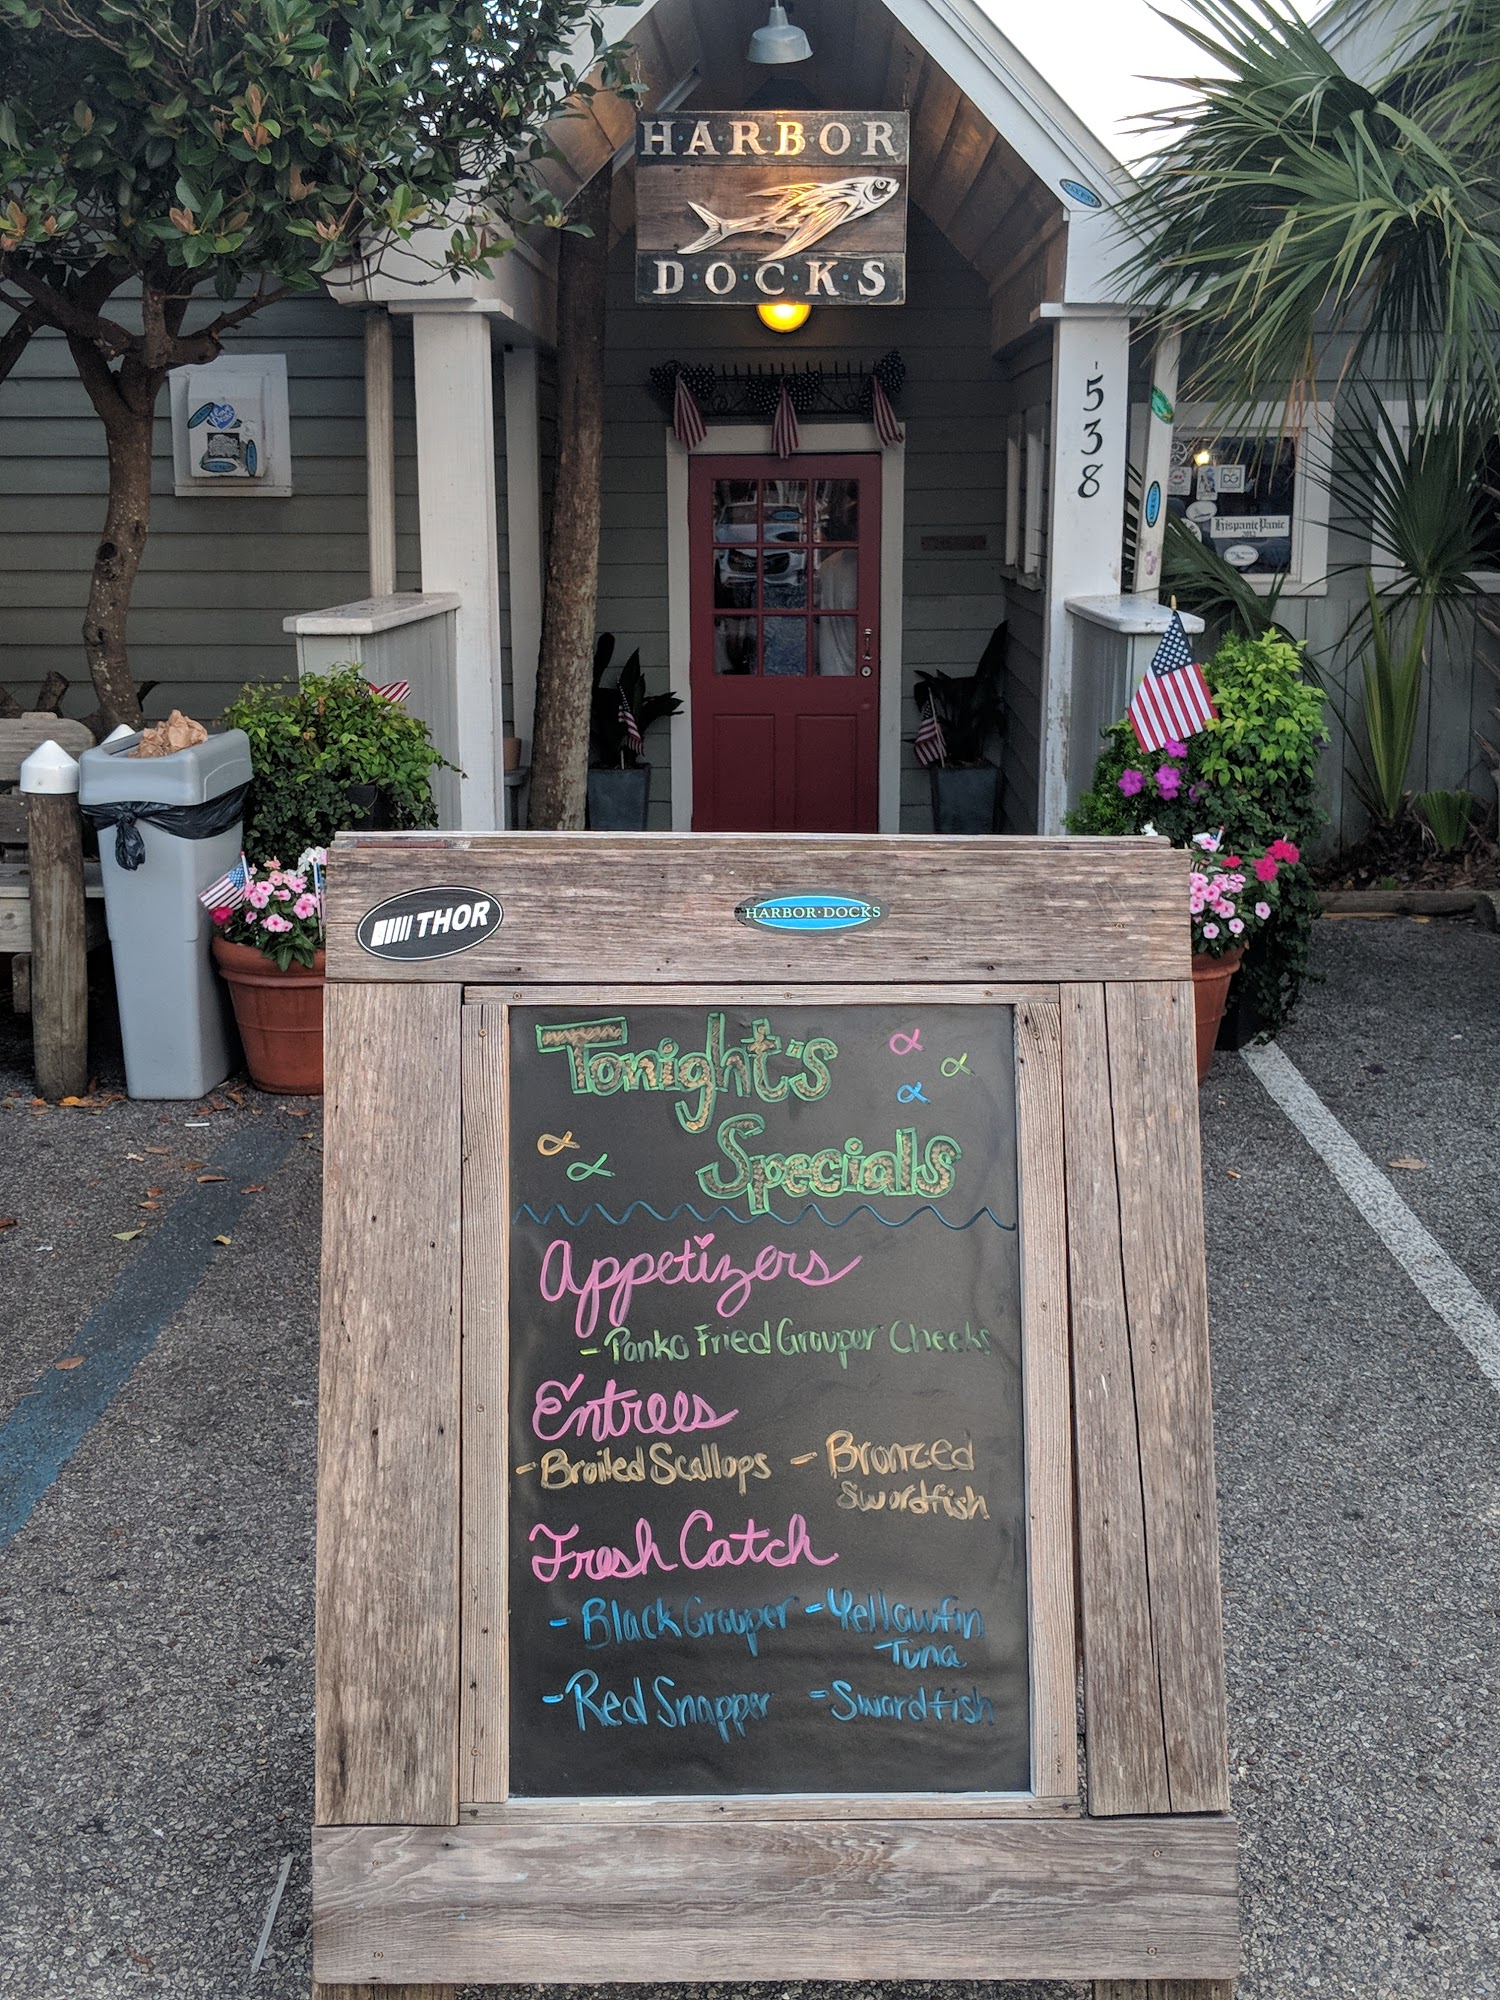 H·A·R·B·O·R
D·O·C·K·S
538
Hispanic Panic
THOR
HARBOR·DOCKS
Tonight's
Specials
Appetizers
- Panko Fried Grouper Cheeks
Entrees
- Broiled Scallops - Bronzed
Swordfish
Fresh Catch
- Black Grouper - Yellowfin
Tuna
- Red Snapper - Swordfish